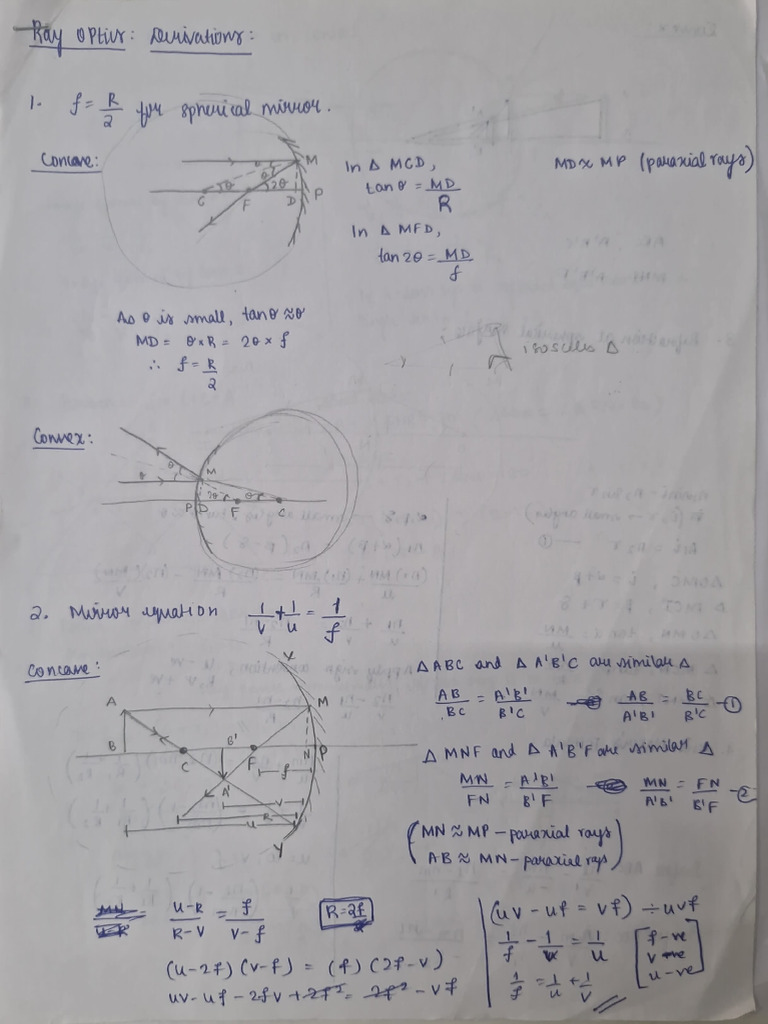 Ray Optics: Derivations:
1. f = R/2 for spherical mirror.
Concave:
M
θ
θ
θ
2θ
C
F
D
P
In Δ MCD,
tan θ = MD/R
In Δ MFD,
tan 2θ = MD/f
MD ≈ MP (paraxial rays)
As θ is small, tan θ ≈ θ
MD = θ × R = 2θ × f
∴ f = R/2
isosceles Δ
Convex:
θ
θ
M
2θ
θ
P
D
F
C
2. Mirror equation 1/v + 1/u = 1/f
Concave:
X
A
M
B
B'
C
F
N
P
A'
f
v
R
u
Y
Δ ABC and Δ A'B'C are similar Δ
AB/BC = A'B'/B'C
AB/A'B' = BC/B'C - ①
Δ MNF and Δ A'B'F are similar Δ
MN/FN = A'B'/B'F
MN/A'B' = FN/B'F - ②
(MN ≈ MP - paraxial rays
AB ≈ MN - paraxial rays)
u-R/R-v = f/v-f
R = 2f
(u-2f)(v-f) = (f)(2f-v)
uv - uf - 2fv + 2f² = 2f² - vf
(uv - uf = vf) ÷ uvf
1/f - 1/v = 1/u
1/f = 1/u + 1/v
[f -ve
v -ve
u -ve]